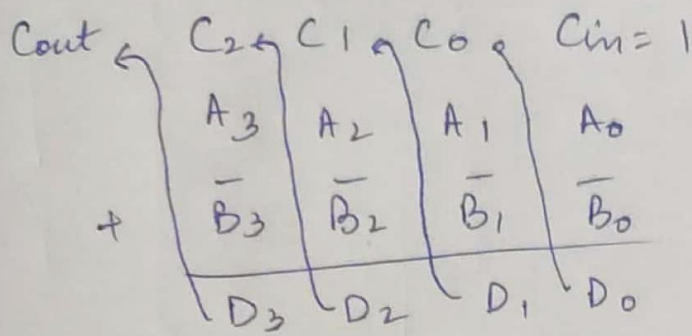 Cout C2 C1 C0 Cin = 1
A3 A2 A1 A0
+ B̅3 B̅2 B̅1 B̅0
D3 D2 D1 D0